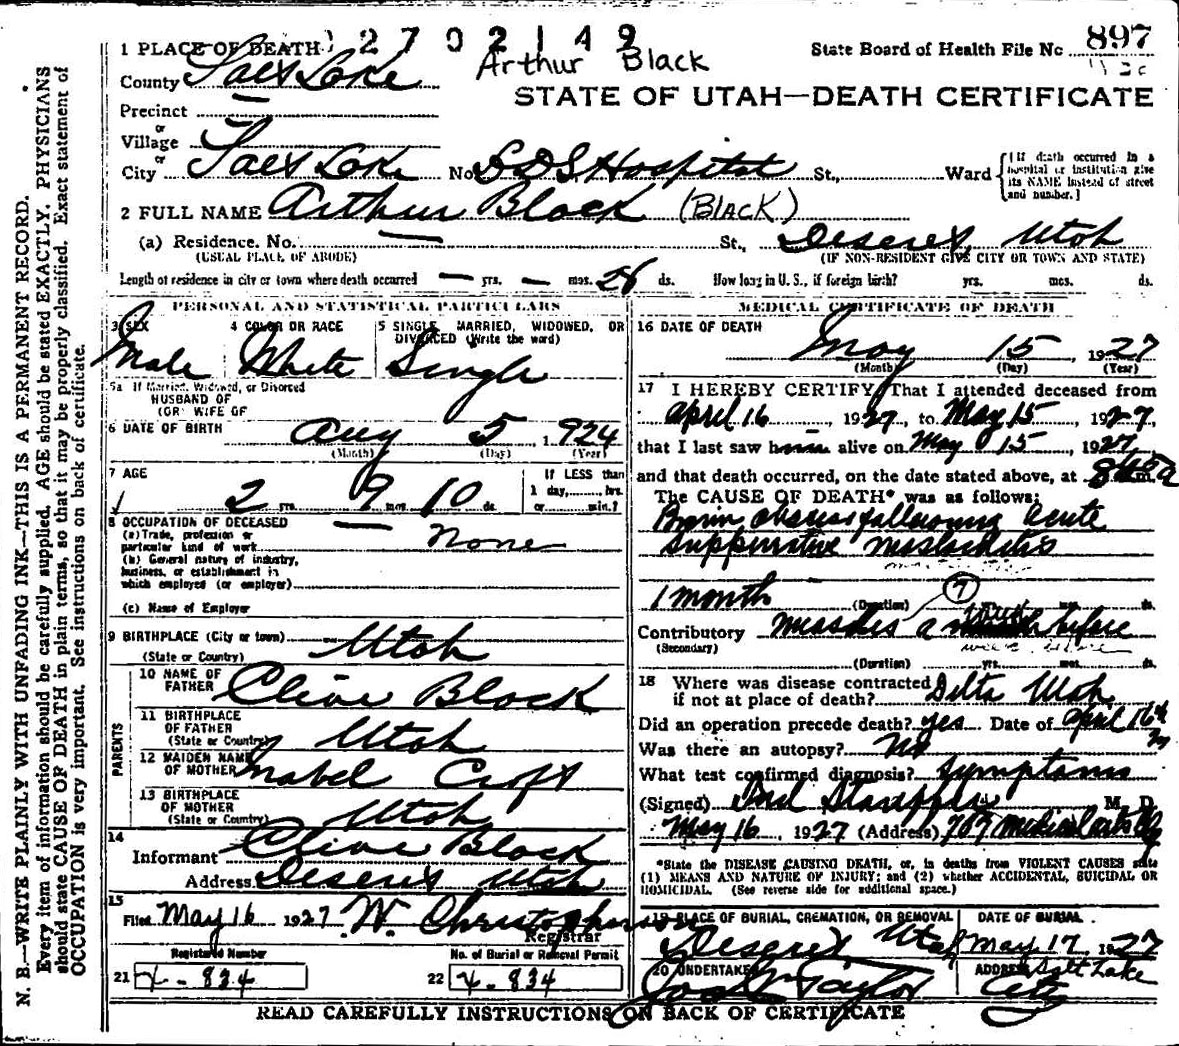 2702149
Arthur Black
State Board of Health File No 897
1 PLACE OF DEATH
County Salt Lake
STATE OF UTAH—DEATH CERTIFICATE
Precinct
or
Village
or
City Salt Lake No. LDS Hospital St., Ward
{[If death occurred in a hospital or institution give its NAME instead of street and number.]
2 FULL NAME Arthur Black (BLACK)
(a) Residence. No. St., Deseret, Utah
(USUAL PLACE OF ABODE) (IF NON-RESIDENT GIVE CITY OR TOWN AND STATE)
Length of residence in city or town where death occurred — yrs. — mos. 26 ds. How long in U. S., if foreign birth? yrs. mos. ds.
PERSONAL AND STATISTICAL PARTICULARS
3 SEX 4 COLOR OR RACE 5 SINGLE, MARRIED, WIDOWED, OR DIVORCED (Write the word)
Male White Single
5a If Married, Widowed, or Divorced
HUSBAND OF
(OR) WIFE OF
6 DATE OF BIRTH Aug 5, 1924
(Month) (Day) (Year)
7 AGE If LESS than
2 yrs. 9 mos. 10 ds. 1 day, hrs.
or min.?
8 OCCUPATION OF DECEASED
(a) Trade, profession or
particular kind of work None
(b) General nature of industry,
business, or establishment in
which employed (or employer)
(c) Name of Employer
9 BIRTHPLACE (City or town)
(State or Country) Utah
PARENTS
10 NAME OF
FATHER Clive Black
11 BIRTHPLACE
OF FATHER
(State or Country) Utah
12 MAIDEN NAME
OF MOTHER Mabel Croft
13 BIRTHPLACE
OF MOTHER
(State or Country) Utah
14
Informant Clive Black
Address Deseret Utah
15
Filed May 16 1927 W. Christopherson
Registrar
Registered Number No. of Burial or Removal Permit
21 X-834 22 X-834
MEDICAL CERTIFICATE OF DEATH
16 DATE OF DEATH
May 15, 1927
(Month) (Day) (Year)
17 I HEREBY CERTIFY That I attended deceased from
April 16, 1927, to May 15, 1927,
that I last saw him alive on May 15, 1927,
and that death occurred, on the date stated above, at
The CAUSE OF DEATH* was as follows:
Brain abscess following acute
suppurative mastoiditis
1 month (Duration)
Contributory Measles a before
(Secondary)
(Duration) yrs. mos. ds.
18 Where was disease contracted
if not at place of death? Delta Utah
Did an operation precede death? yes Date of April 16th
Was there an autopsy? No
What test confirmed diagnosis? Symptoms
(Signed) M. D.
May 16, 1927 (Address) 707 Medical Arts Bldg
*State the DISEASE CAUSING DEATH, or, in deaths from VIOLENT CAUSES state
(1) MEANS AND NATURE OF INJURY; and (2) whether ACCIDENTAL, SUICIDAL OR
HOMICIDAL. (See reverse side for additional space.)
19 PLACE OF BURIAL, CREMATION, OR REMOVAL DATE OF BURIAL
Deseret, Utah May 17, 1927
20 UNDERTAKER ADDRESS Salt Lake
Jos Wm Taylor City
READ CAREFULLY INSTRUCTIONS ON BACK OF CERTIFICATE
N. B.—WRITE PLAINLY WITH UNFADING INK—THIS IS A PERMANENT RECORD.
Every item of information should be carefully supplied. AGE should be stated EXACTLY. PHYSICIANS
should state CAUSE OF DEATH in plain terms, so that it may be properly classified. Exact statement of
OCCUPATION is very important. See instructions on back of certificate.